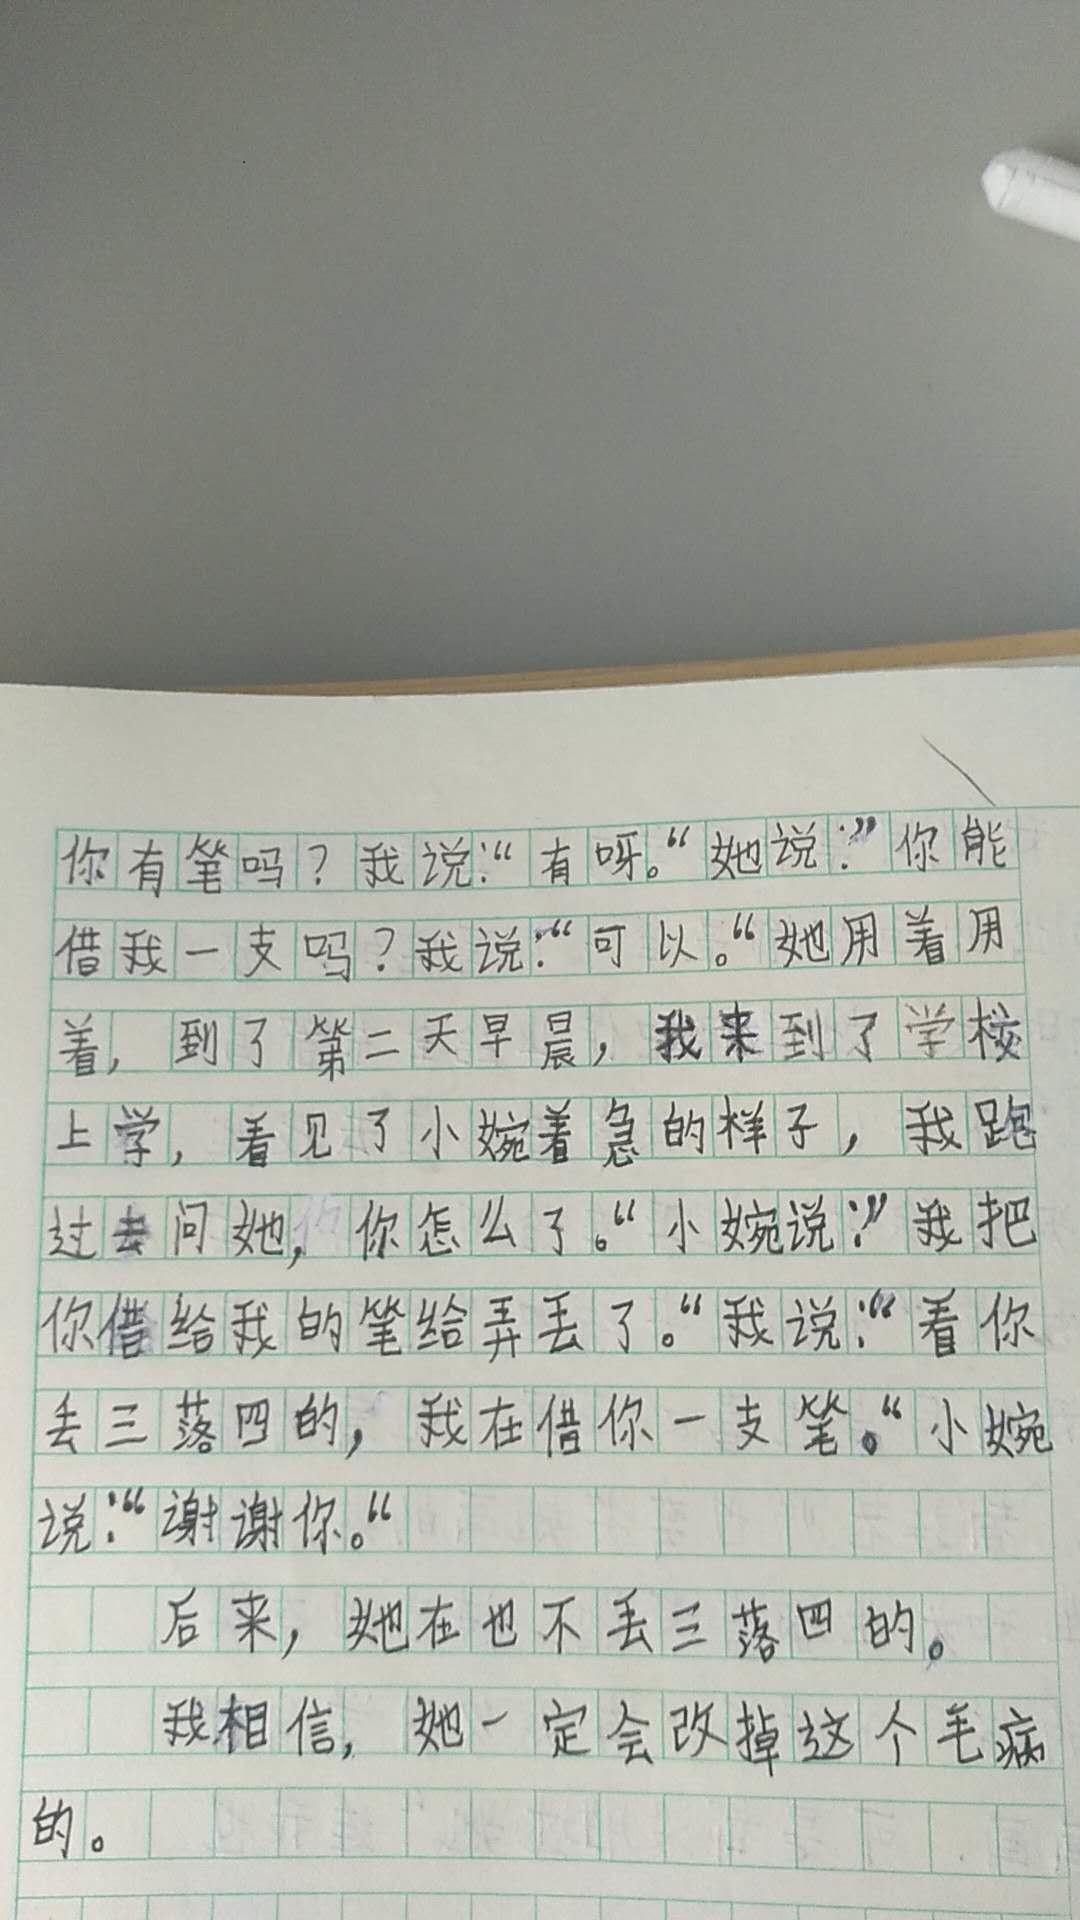 你有笔吗？我说：“有呀。“她说：”你能
借我一支吗？我说：“可以。“她用着用
着，到了第二天早晨，我来到了学校
上学，看见了小婉着急的样子，我跑
过去问她，你怎么了。“小婉说：”我把
你借给我的笔给弄丢了。“我说：“看你
丢三落四的，我在借你一支笔。“小婉
说：“谢谢你。“
后来，她在也不丢三落四的。
我相信，她一定会改掉这个毛病
的。